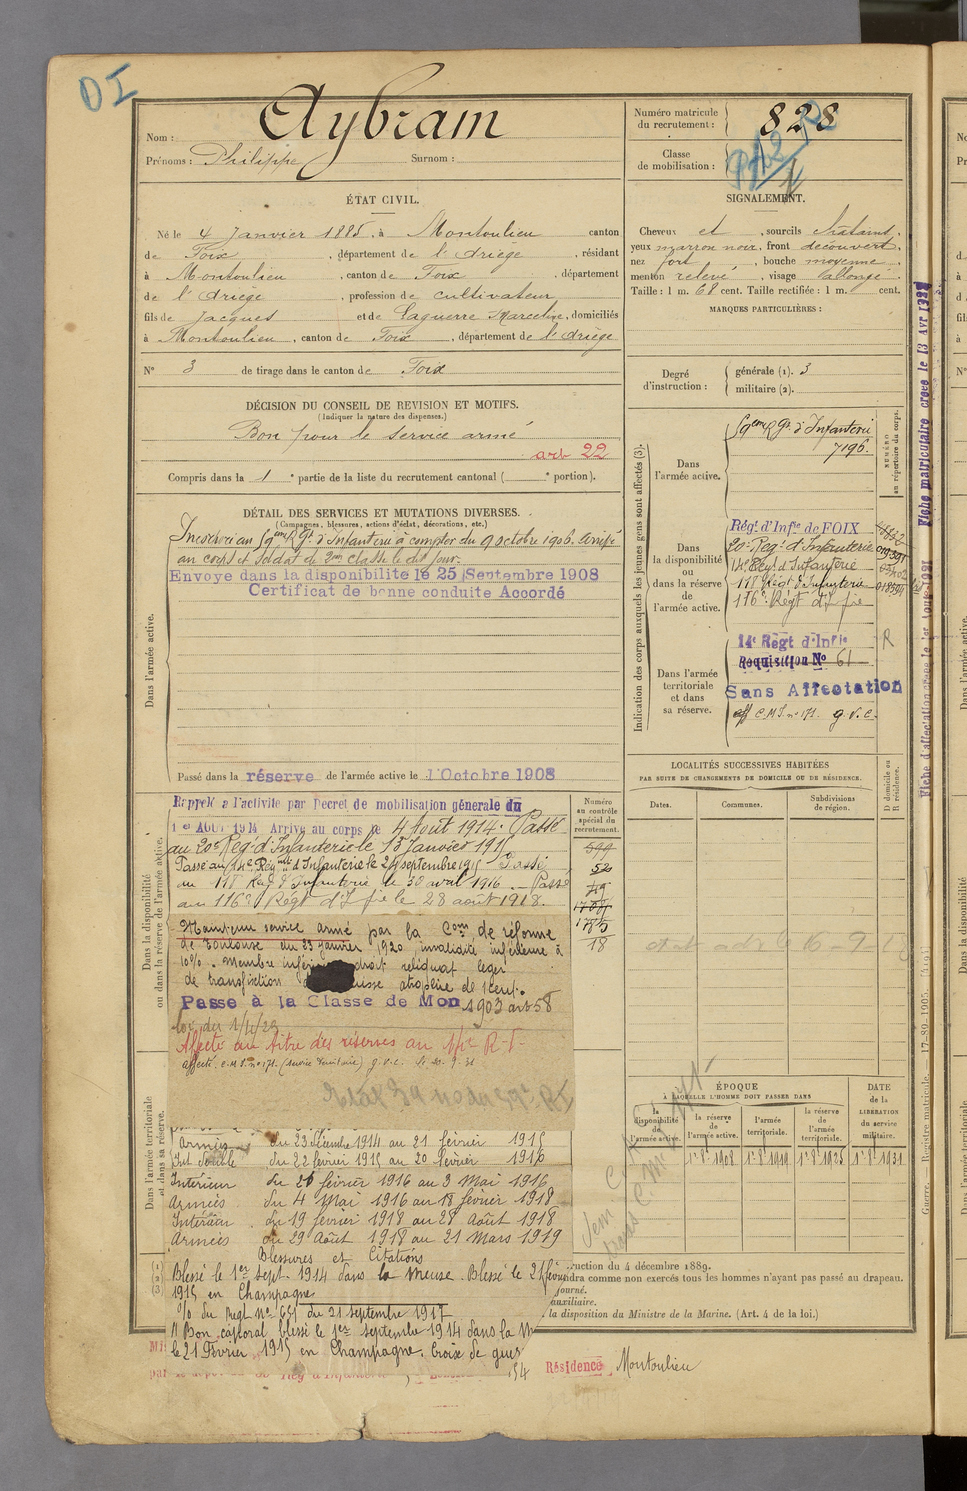 DI
Nom : Aybram
Prénoms : Philippe Surnom :
Numéro matricule du recrutement : 828
Classe de mobilisation :
ÉTAT CIVIL.
Né le 4 Janvier 1885, à Montoulieu canton
de Foix, département de l'Ariège, résidant
à Montoulieu, canton de Foix, département
de l'Ariège, profession de cultivateur
fils de Jacques et de Laguerre Marceline, domiciliés
à Montoulieu, canton de Foix, département de l'Ariège
N° 3 de tirage dans le canton de Foix
SIGNALEMENT.
Cheveux et, sourcils chatains,
yeux marron noir, front découvert,
nez fort, bouche moyenne,
menton relevé, visage allongé.
Taille : 1 m. 68 cent. Taille rectifiée : 1 m. cent.
MARQUES PARTICULIÈRES :
Degré d'instruction : générale (1). 3
militaire (2).
DÉCISION DU CONSEIL DE REVISION ET MOTIFS.
(Indiquer la nature des dispenses.)
Bon pour le service armé
art 22
Compris dans la 1e partie de la liste du recrutement cantonal ( e portion).
DÉTAIL DES SERVICES ET MUTATIONS DIVERSES.
(Campagnes, blessures, actions d'éclat, décorations, etc.)
Incorporé au 59eme Rgt d'Infanterie à compter du 9 octobre 1906. Arrivé
au corps et soldat de 2me classe le dit jour.
Envoyé dans la disponibilité le 25 Septembre 1908
Certificat de bonne conduite Accordé
Dans l'armée active.
Passé dans la réserve de l'armée active le 1 Octobre 1908
Indication des corps auxquels les jeunes gens sont affectés (3).
NUMÉRO au répertoire du corps.
Dans l'armée active.
59eme Rgt d'Infanterie
7196.
Dans la disponibilité ou dans la réserve de l'armée active.
Régt d'Infie de FOIX
20e Regt d'Infanterie
14e Regt d'Infanterie
118 Régt d'Infanterie
116e Régt d'Infie
Dans l'armée territoriale et dans sa réserve.
14e Régt d'Infie
R
Requisition No 61
Sans Affectation
aff C.M.I. n° 171. G.V.C.
Fiche matriculaire créée le 13 Avr
Dans la disponibilité ou dans la réserve de l'armée active.
Rappelé à l'activité par Decret de mobilisation génerale du
1er Aout 1914 Arrivé au corps le 4 Aout 1914. Passé
au 20e Regt d'Infanterie le 13 Janvier 1915
Passé au 14e Régiment d'Infanterie le 24 septembre 1915 Passé
au 118 Reg d'Infanterie le 30 avril 1916. Passé
au 116e Régt d'Ifie le 28 août 1918.
Numéro au contrôle spécial du recrutement.
52
18
Maintenu service armé par la Com de réforme
de Toulouse du 23 Janvier 1920 invalidité inférieure à
10%. Membre inférieur droit reliquat leger
de transfixion
Passé à la Classe de Mon 1903 art 58
loi du 1/4/23
Affecté au titre des réserves au 14e R.I.
affecté C.M.I. n° 171. (Service Territorial) G.V.C.
LOCALITÉS SUCCESSIVES HABITÉES
PAR SUITE DE CHANGEMENTS DE DOMICILE OU DE RÉSIDENCE.
Dates. Communes. Subdivisions de région.
D domicile ou R résidence.
Dans l'armée territoriale et dans sa réserve.
Armées du 23 Décembre 1914 au 21 février 1915
Int double du 22 février 1915 au 20 février 1916
Intérieur du 21 février 1916 au 3 Mai 1916
Armées du 4 Mai 1916 au 18 février 1918
Intérieur du 19 février 1918 au 28 Août 1918
Armées du 29 Août 1918 au 21 Mars 1919
Blessures et Citations
Blessé le 1er Sept. 1914 dans la Meuse. Blessé le 21 février
1915 en Champagne
O/ du Regt No 651 du 21 septembre 1917
"Bon caporal blessé le 1er septembre 1914 dans la M
le 21 Février 1915 en Champagne. Croix de guer
ÉPOQUE
À LAQUELLE L'HOMME DOIT PASSER DANS
la disponibilité de l'armée active.
la réserve de l'armée active.
l'armée territoriale.
la réserve de l'armée territoriale.
DATE de la LIBÉRATION du service militaire.
1er 8bre 1908
1er 8bre 1919
1er 8bre 1925
1er 8bre 1931
(1)
(2)
(3)
ruction du 4 décembre 1889.
dra comme non exercés tous les hommes n'ayant pas passé au drapeau.
journé.
auxiliaire.
la disposition du Ministre de la Marine. (Art. 4 de la loi.)
Résidence Montoulieu
Guerre. Registre matricule. — 17-89-1905.